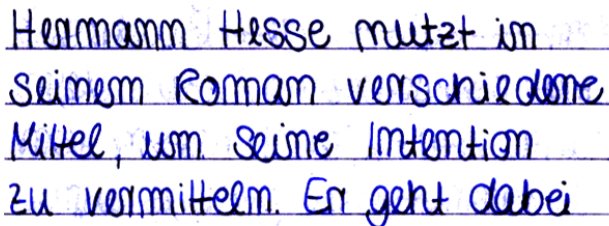 Hermann Hesse nutzt in
seinem Roman verschiedene
Mittel, um seine Intention
zu vermitteln. Er geht dabei